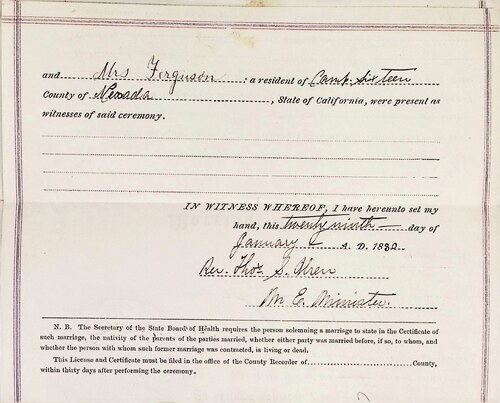 and Mrs Ferguson : a resident of Camp Sixteen
County of Nevada , State of California, were present as
witnesses of said ceremony.
IN WITNESS WHEREOF, I have hereunto set my
hand, this twenty ninth day of
January A. D. 1882
Rev. Thos. S. Uren
M. E. Minister.
N. B. The Secretary of the State Board of Health requires the person solemning a marriage to state in the Certificate of
such marriage, the nativity of the parents of the parties married, whether either party was married before, if so, to whom, and
whether the person with whom such former marriage was contracted, is living or dead.
This License and Certificate must be filed in the office of the County Recorder of County,
within thirty days after performing the ceremony.